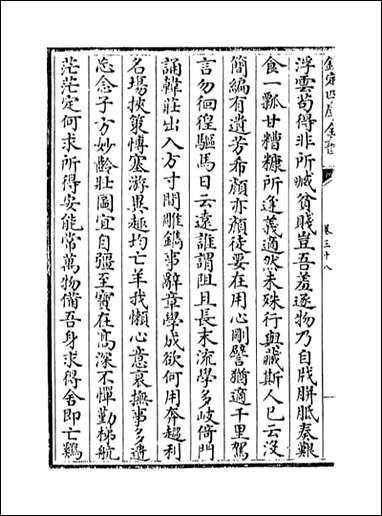 欽定四庫全書
卷三十八
浮雲苟得非所臧貧賤豈吾羞逐物乃自戕胼胝奏艱
食一瓢甘糟糠所逢義適然未殊行與藏斯人已云沒
簡編有遺芳希顔亦顔徒要在用心剛譬猶適千里駕
言勿徊徨驅馬日云遠誰謂阻且長末流學多岐倚門
誦韓莊出入方寸間雕鐫事辭章學成欲何用奔趨利
名場挾策博塞游異趣均亡羊我懶心意衰撫事多遺
忘念子方妙齡壯圖宜自彊至寶在髙深不憚勤梯航
茫茫定何求所得安能常萬物備吾身求得舍即亡雞